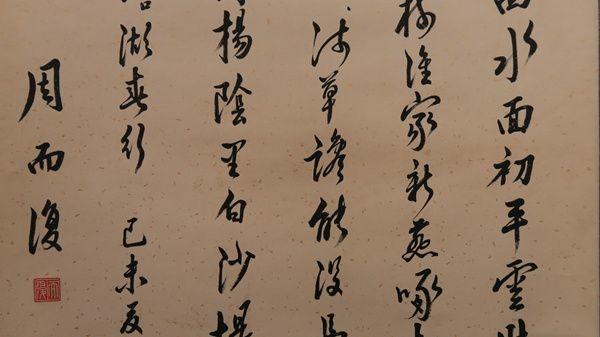 水面初平雲
誰家新燕啄
淺草能没馬
楊陰里白沙堤
湖春行 己未夏
周而復